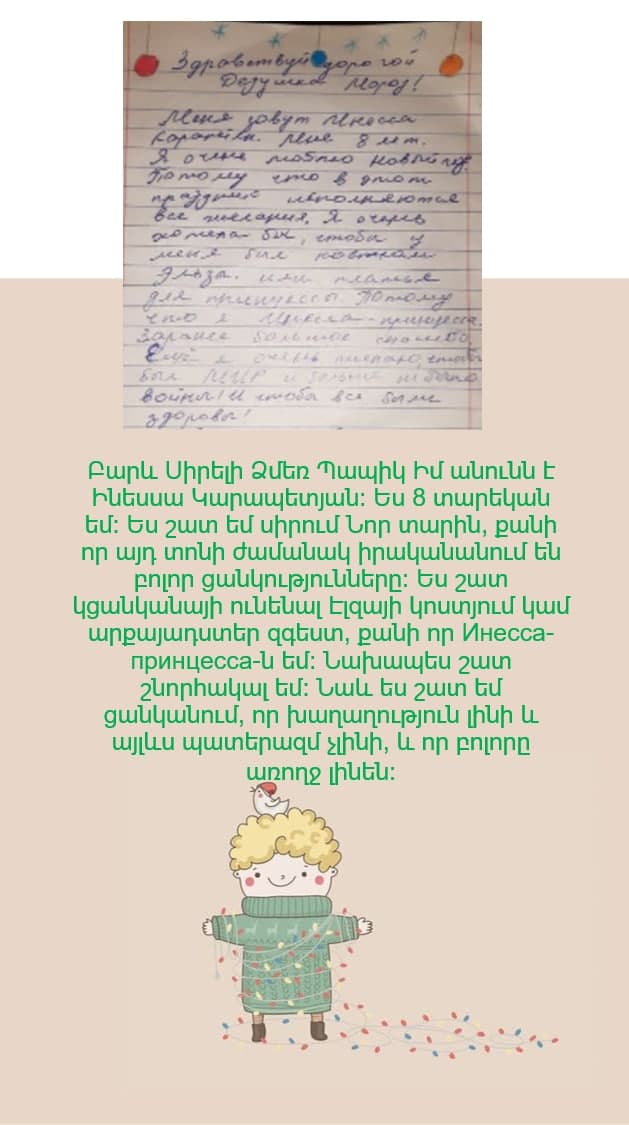 Здравствуй дорогой
Дедушка Мороз!
Меня зовут Инесса
Карапетян. Мне 8 лет.
Я очень люблю Новый год.
Потому что в этот
праздник исполняются
все желания. Я очень
хотела бы, чтобы у
меня был костюм
Эльзы. или платье
для принцессы. Потому
что я Инесса-принцесса.
Заранее большое спасибо.
Ещё я очень желаю, чтобы
был МИР и больше не было
войны! И чтобы все были
здоровы!
Բարև Սիրելի Ձմեռ Պապիկ Իմ անունն է
Ինեսսա Կարապետյան: Ես 8 տարեկան
եմ: Ես շատ եմ սիրում Նոր տարին, քանի
որ այդ տոնի ժամանակ իրականանում են
բոլոր ցանկությունները: Ես շատ
կցանկանայի ունենալ Էլզայի կոստյում կամ
արքայադստեր զգեստ, քանի որ Инесса-
принцесса-ն եմ: Նախապես շատ
շնորհակալ եմ: Նաև ես շատ եմ
ցանկանում, որ խաղաղություն լինի և
այլևս պատերազմ չլինի, և որ բոլորը
առողջ լինեն: